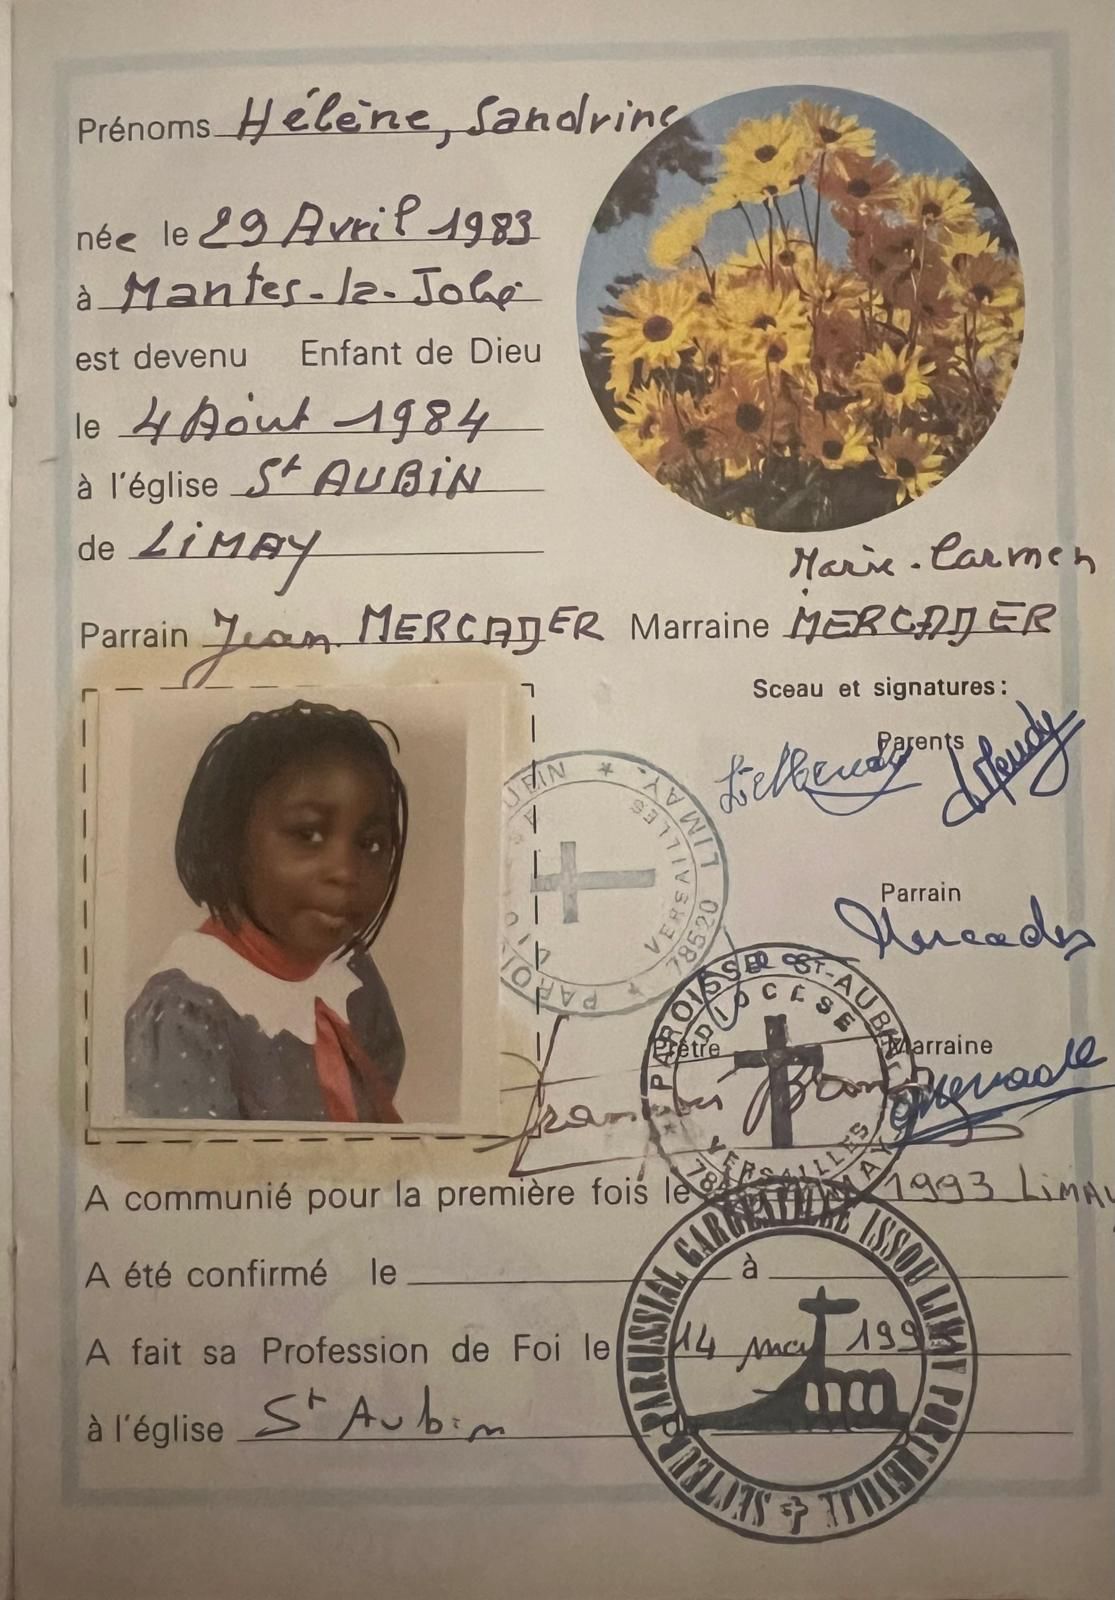 Prénoms Hélène, Sandrine
née le 29 Avril 1983
à Mantes-la-Jolie
est devenu Enfant de Dieu
le 4 Août 1984
à l'église St AUBIN
de LIMAY
Marie-Carmen
Parrain Jean MERCADER Marraine MERCADER
Sceau et signatures:
Parents
LIMAY
VERSAILLES
78520
Parrain
PAROISSE ST-AUBIN
DIOCESE
Prêtre
Marraine
VERSAILLES
A communié pour la première fois le 1993 LIMAY
A été confirmé le à
A fait sa Profession de Foi le 14 mai 199
à l'église St Aubin
SECTEUR PAROISSIAL GARGENVILLE ISSOU LIMAY PORCHEVILLE